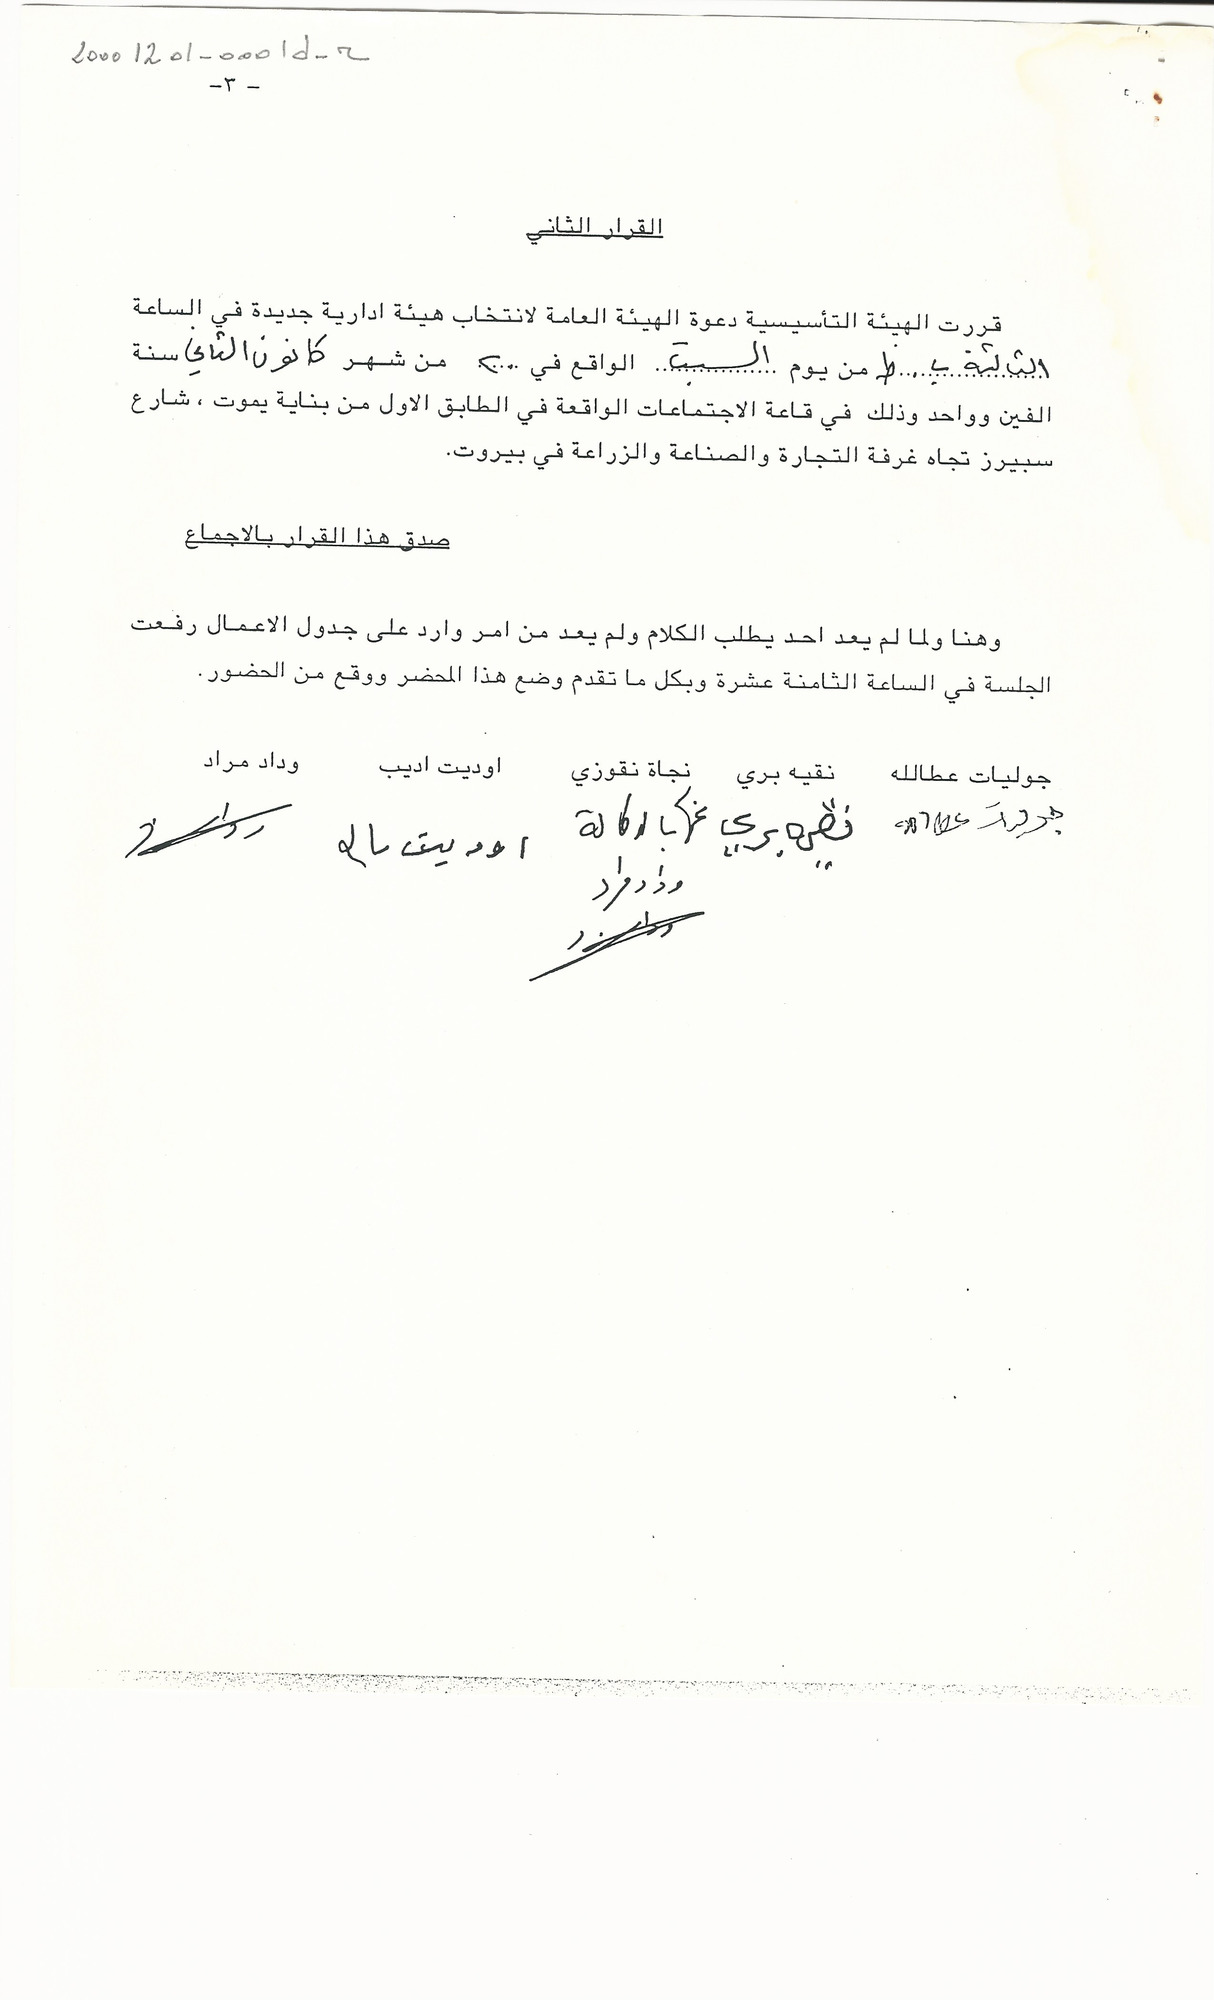 20001201-0001d-r
-٣ -
القرار الثاني
قررت الهيئة التأسيسية دعوة الهيئة العامة لانتخاب هيئة ادارية جديدة في الساعة
الثالثة ب.ظ من يوم السبت الواقع في ٢٠ من شهر كانون الثاني سنة
الفين وواحد وذلك في قاعة الاجتماعات الواقعة في الطابق الاول من بناية يموت ، شارع
سبيرز تجاه غرفة التجارة والصناعة والزراعة في بيروت.
صدق هذا القرار بالاجماع
وهنا ولما لم يعد احد يطلب الكلام ولم يعد من امر وارد على جدول الاعمال رفعت
الجلسة في الساعة الثامنة عشرة وبكل ما تقدم وضع هذا المحضر ووقع من الحضور.
جوليات عطالله نقيه بري نجاة نقوزي اوديت اديب وداد مراد
بري بالوكالة اوديت
وداد مراد